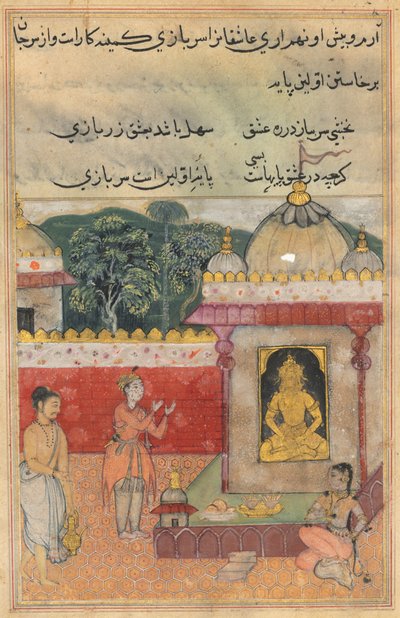 آرم و پیش او نهم اری عاشقانرا سربازی کمینه کار است و از سر جان
برخاستن اولین پایه
نخشبی سر بباز در ره عشق سهل باشد بعشق زر بازی
گرچه در عشق پایهاست بسی پایه اولین است سربازی